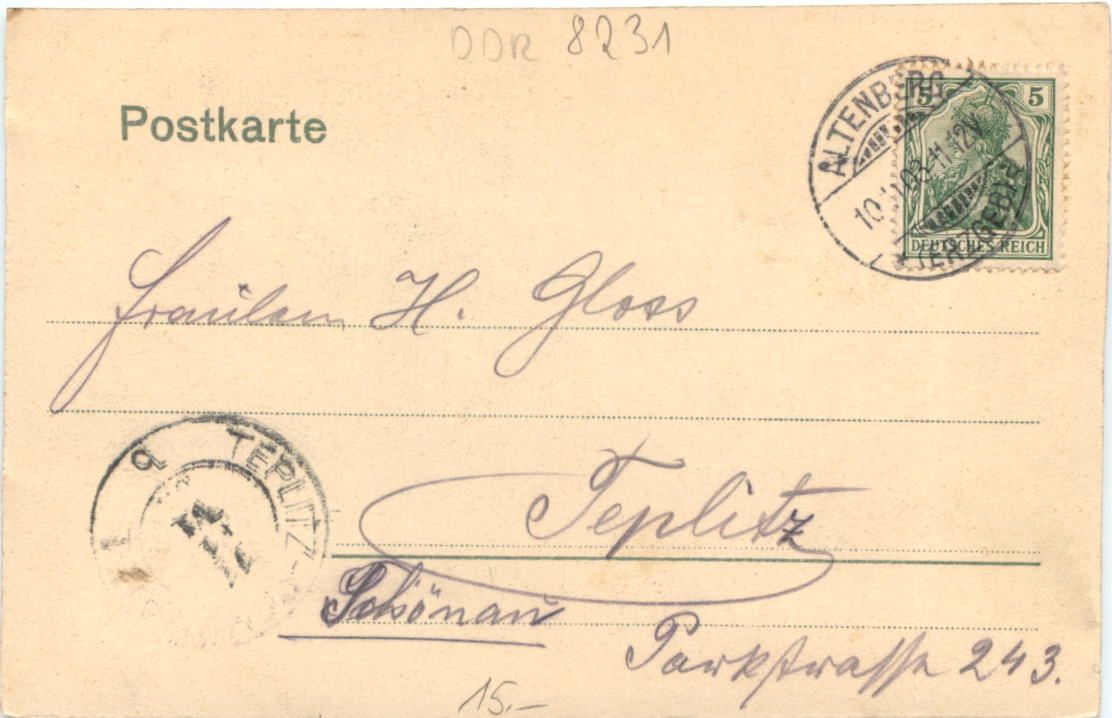 DDR 8231
Postkarte
ALTENBERG
(ERZGEBIRGE)
5 5
DEUTSCHES REICH
Fräulein H. Gloss
TEPLITZ-
Teplitz
Schönau
Parkstrasse 243.
15.–